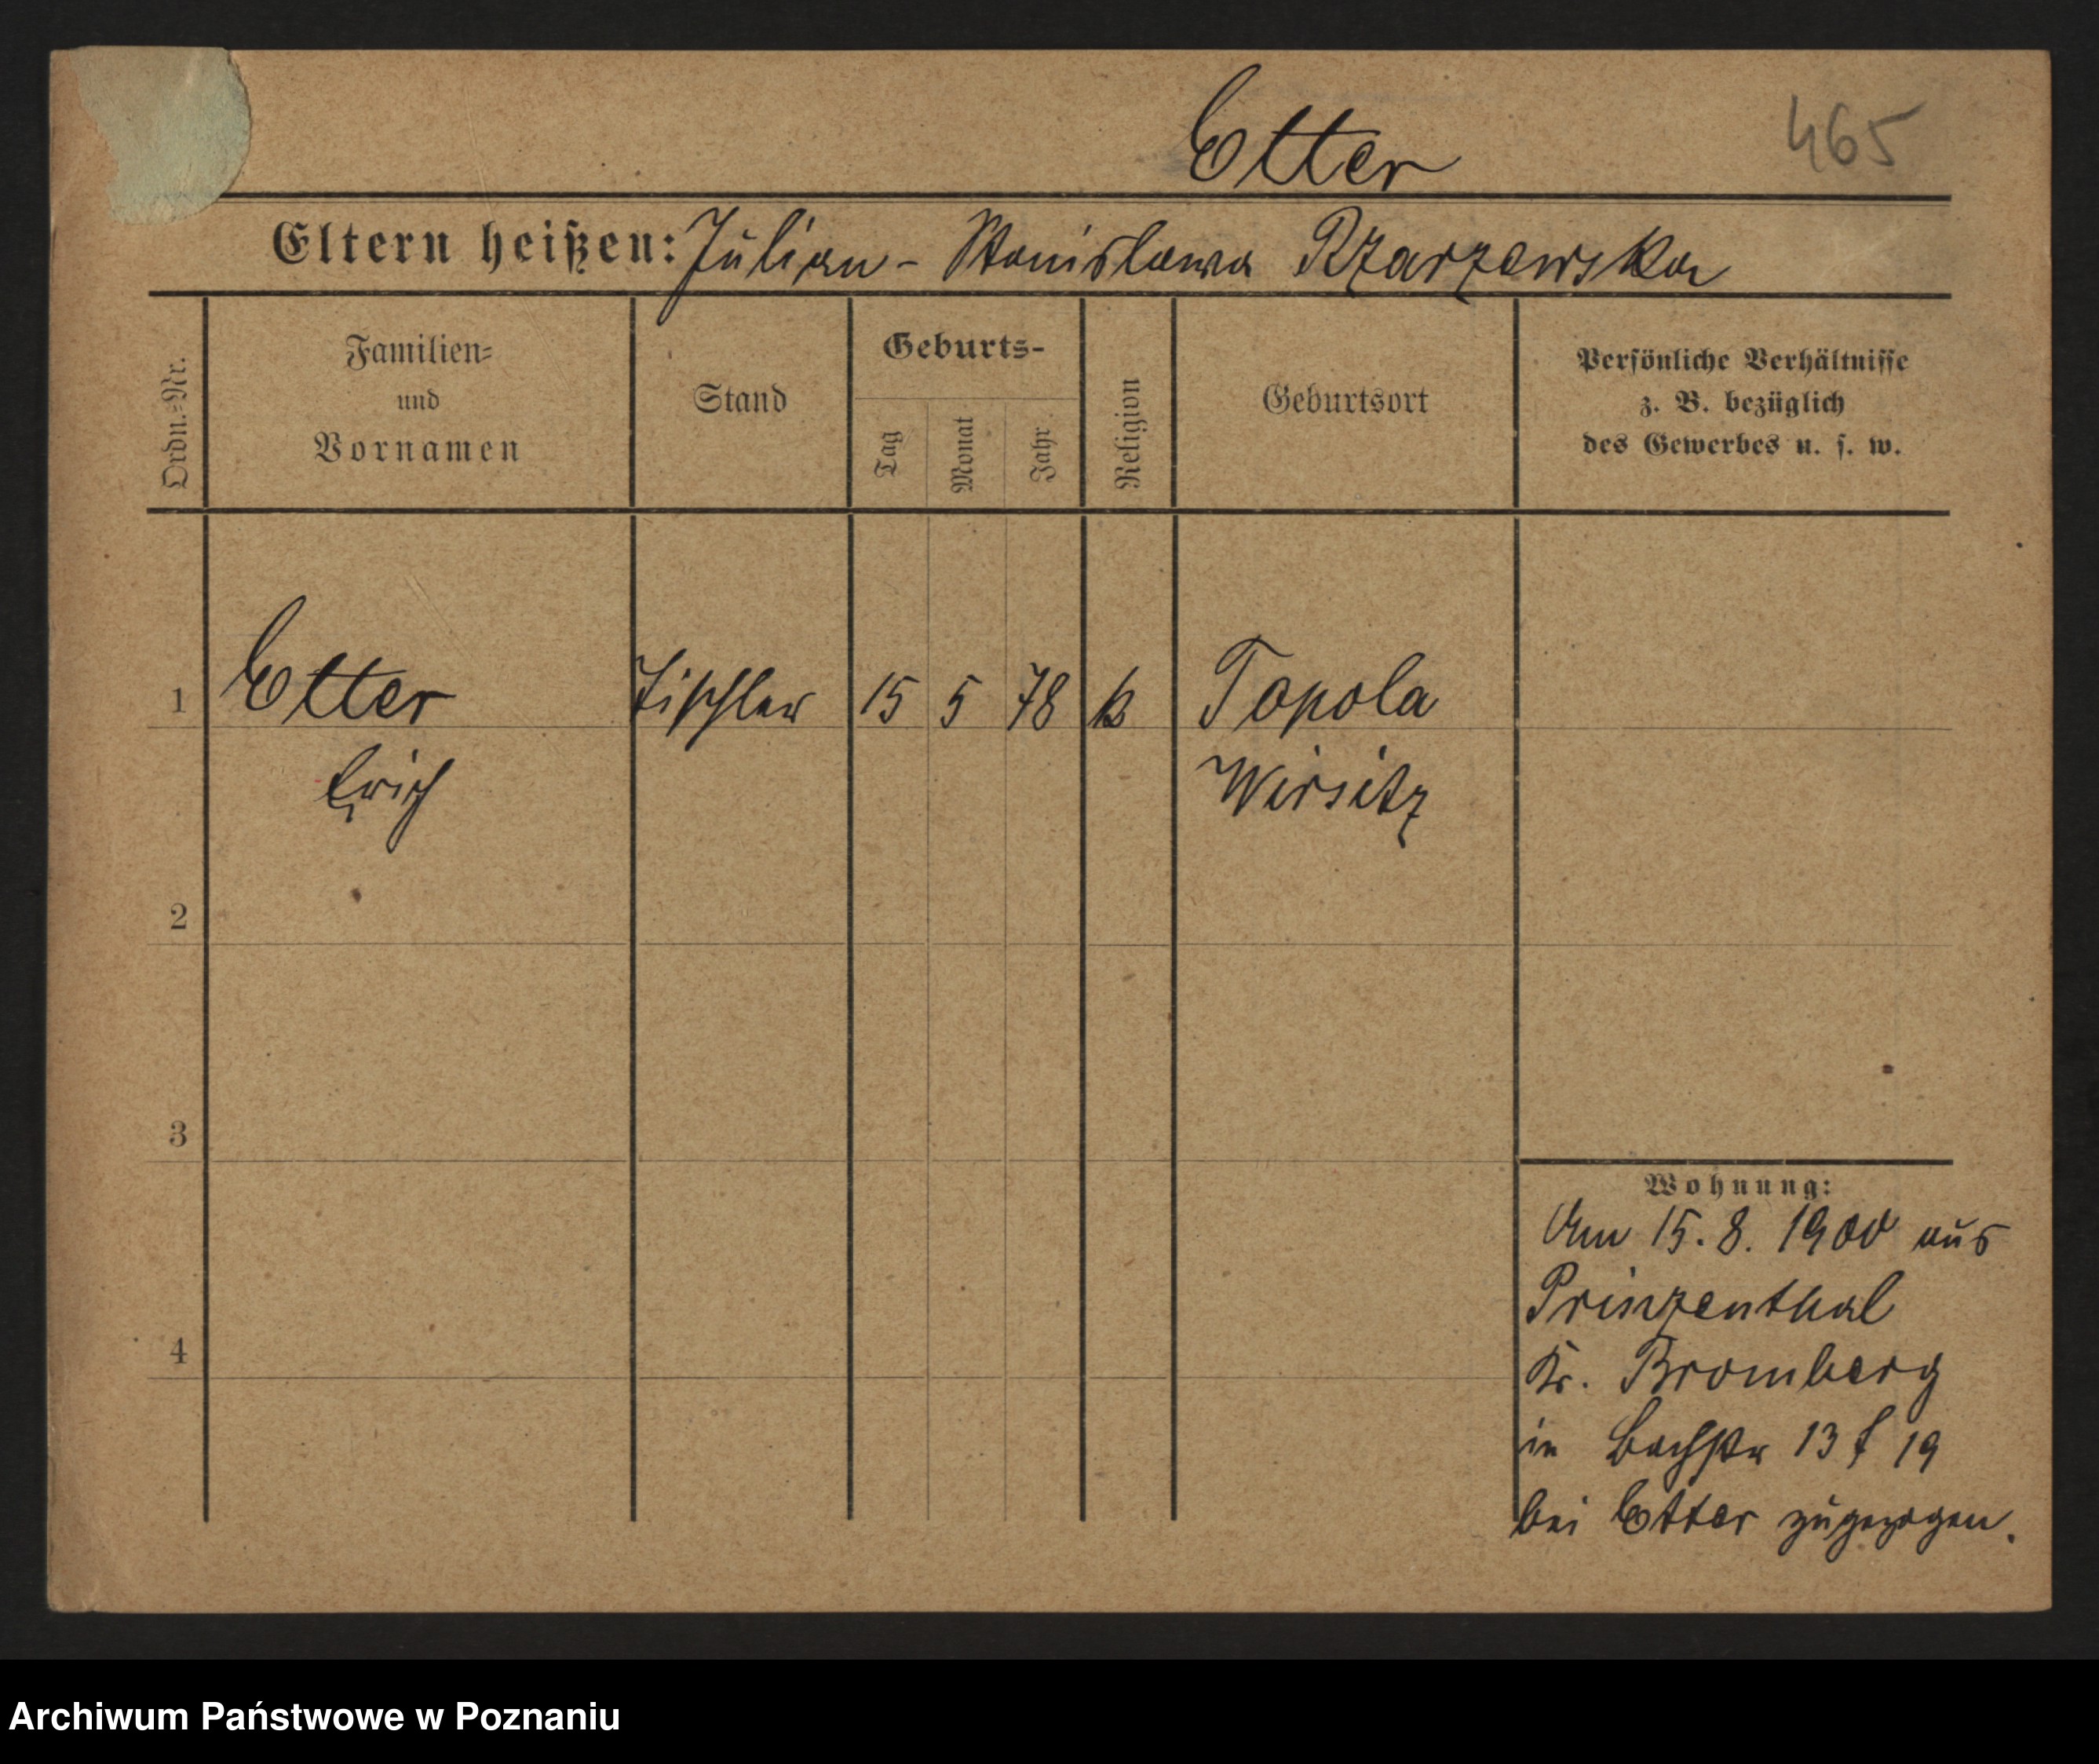 Etter
465
Eltern heißen: Julian - Stanislawa Rzarzewska
Ordn.-Nr.
Familien-
und
Vornamen
Stand
Geburts-
Tag
Monat
Jahr
Religion
Geburtsort
Persönliche Verhältnisse
z. B. bezüglich
des Gewerbes u. s. w.
1 Etter Tischler 15 5 78 k Topola
Erich Wirsitz
2
3
Wohnung:
Am 15. 8. 1900 aus
Prinzenthal
4
Kr. Bromberg
in Bachstr 13 19
bei Etter zugezogen.
Archiwum Państwowe w Poznaniu